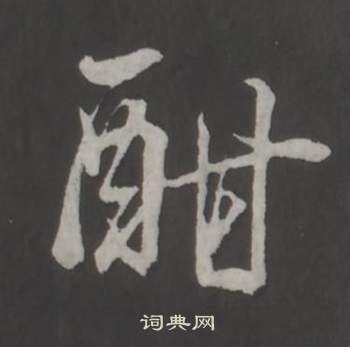 酣
词典网